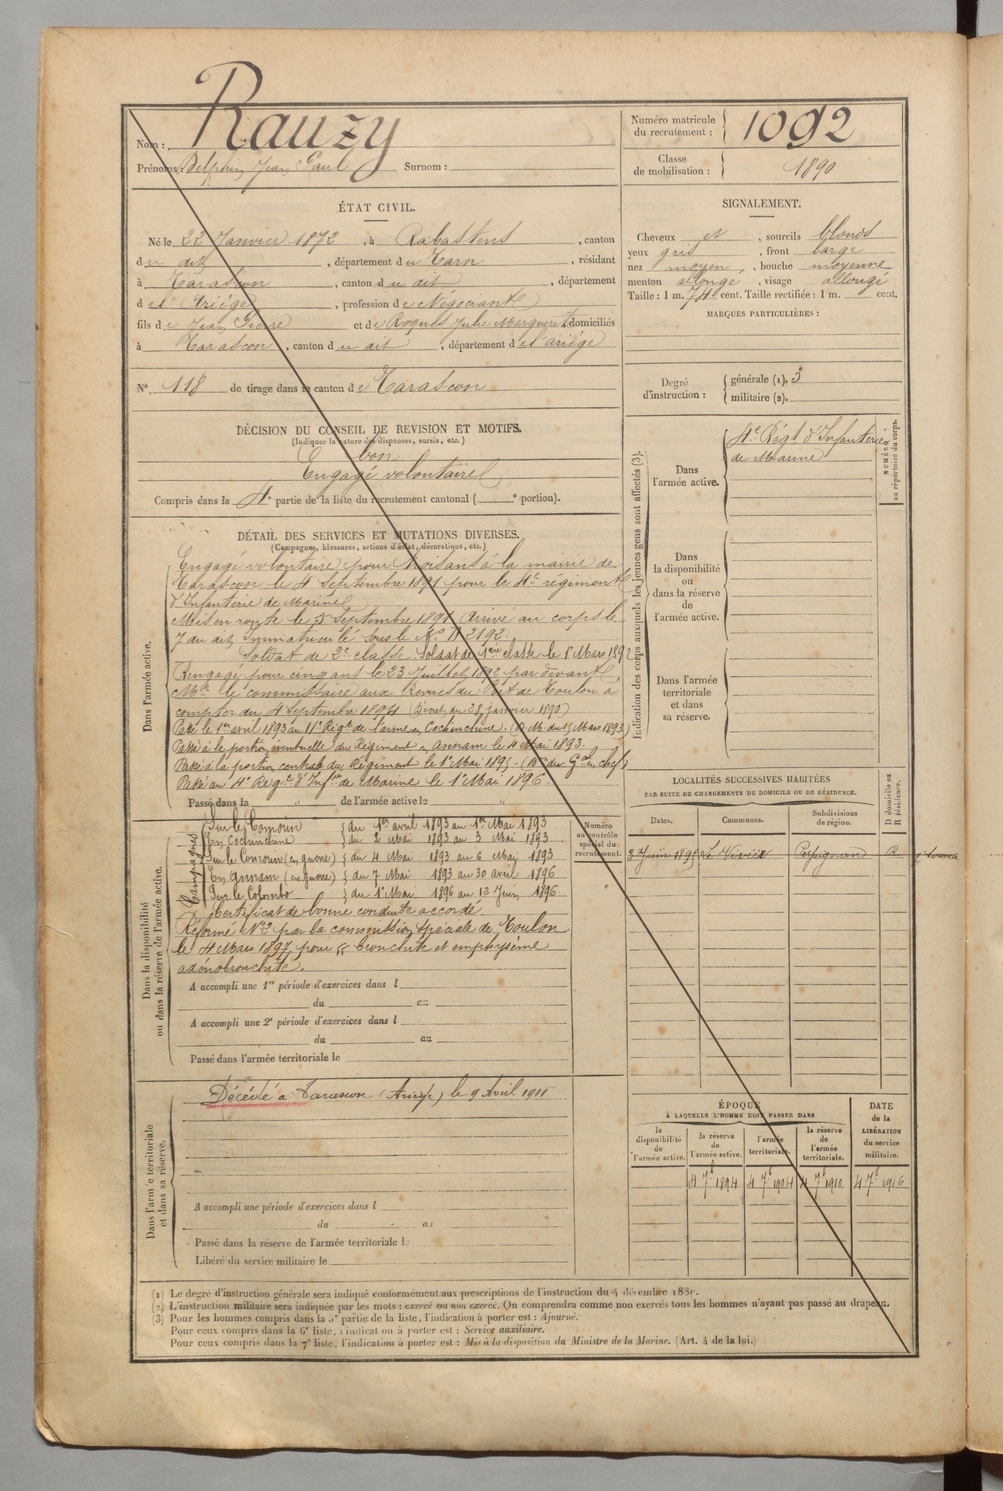 Nom : Rauzy
Prénoms : Delphin Jean Paul Surnom :
Numéro matricule du recrutement : 1092
Classe de mobilisation : 1890
ÉTAT CIVIL.
Né le 22 Janvier 1872, à Rabastens, canton
du dit, département du Tarn, résidant
à Tarascon, canton du dit, département
de l'Ariège, profession de Négociant
fils de Jean Pierre et de Roques Julie Marguerite, domiciliés
à Tarascon, canton du dit, département de l'ariège
N° 118 de tirage dans le canton de Tarascon
SIGNALEMENT.
Cheveux et, sourcils blonds
yeux gris, front large
nez moyen, bouche moyenne
menton allongé, visage allongé
Taille : 1 m. 74 cent. Taille rectifiée : 1 m. cent.
MARQUES PARTICULIÈRES :
Degré d'instruction : générale (1). 3
militaire (2).
DÉCISION DU CONSEIL DE REVISION ET MOTIFS.
(Indiquer la nature des dispenses, sursis, etc.)
bon
Engagé volontaire
Compris dans la 4e partie de la liste du recrutement cantonal ( e portion).
DÉTAIL DES SERVICES ET MUTATIONS DIVERSES.
(Campagnes, blessures, actions d'éclat, décorations, etc.)
Dans l'armée active.
Engagé volontaire pour trois ans à la mairie de
Tarascon le 4 Septembre 1891 pour le 4e régiment
d'Infanterie de Marine
Mis en route le 5 Septembre 1891 Arrivé au corps le
7 au dit, immatriculé sous le No 112192.
Soldat de 2e classe. Soldat de 1ère classe le 1er Mars 1892
Rengagé pour cinq ans le 23 Juillet 1892 par devant
Mr le commissaire aux Revues du Port de Toulon à
compter du 4 Septembre 1894 (Décret du 28 janvier 1890)
Passé le 1er avril 1893 au 11e Régt de l'arme en Cochinchine. (D.M. du 15 Mars 1893)
Passé à la portion éventuelle du Régiment en Annam le 4 Mai 1893.
Passé à la portion centrale du Régiment le 1er Mai 1895.
Passé au 4e Régt d'Infie de Marine le 1er Mai 1896
Passé dans la " de l'armée active le "
Dans la disponibilité ou dans la réserve de l'armée active.
Campagnes
Sur le Comorin du 1er avril 1893 au 1er Mai 1893
En Cochinchine du 2 Mai 1893 au 3 Mai 1893
Sur le Comorin (en guerre) du 4 Mai 1893 au 6 Mai 1893
En Annam (en guerre) du 7 Mai 1893 au 30 avril 1896
Sur le Colombo du 1er Mai 1896 au 12 Juin 1896
Certificat de bonne conduite accordé
Réformé No 2 par la commission spéciale de Toulon
le 4 Mars 1897 pour bronchite et emphysème
adénobronchite.
A accompli une 1re période d'exercices dans l
du au
A accompli une 2e période d'exercices dans l
du au
Passé dans l'armée territoriale le
Numéro au contrôle spécial du recrutement.
"
Dans l'armée territoriale et dans sa réserve.
Décédé à Tarascon (Ariège) le 9 Avril 1911
A accompli une période d'exercices dans l
du au
Passé dans la réserve de l'armée territoriale le
Libéré du service militaire le
Indication des corps auxquels les jeunes gens sont affectés (3).
NUMÉRO au répertoire du corps.
Dans l'armée active.
4e Régt d'Infanterie
de Marine
Dans la disponibilité ou dans la réserve de l'armée active.
Dans l'armée territoriale et dans sa réserve.
LOCALITÉS SUCCESSIVES HABITÉES
PAR SUITE DE CHANGEMENTS DE DOMICILE OU DE RÉSIDENCE.
Dates. Communes. Subdivisions de région. D domicile ou R résidence.
Perpignan R
ÉPOQUE
À LAQUELLE L'HOMME DOIT PASSER DANS
la disponibilité de l'armée active.
la réserve de l'armée active.
l'armée territoriale.
la réserve de l'armée territoriale.
DATE de la LIBÉRATION du service militaire.
4 7e 1894 4 7e 1904 4 7e 1910 4 7e 1916
(1) Le degré d'instruction générale sera indiqué conformément aux prescriptions de l'instruction du 4 décembre 1889.
(2) L'instruction militaire sera indiquée par les mots : exercé ou non exercé. On comprendra comme non exercés tous les hommes n'ayant pas passé au drapeau.
(3) Pour les hommes compris dans la 5e partie de la liste, l'indication à porter est : Ajourné.
Pour ceux compris dans la 6e liste, l'indication à porter est : Service auxiliaire.
Pour ceux compris dans la 7e liste, l'indication à porter est : Mis à la disposition du Ministre de la Marine. (Art. 4 de la loi.)